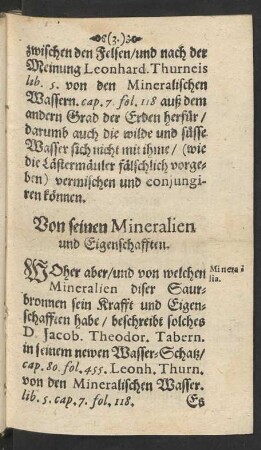 (3.)
zwischen den Felsen/und nach der
Meinung Leonhard. Thurneis
lib. 5. von den Mineralischen
Wassern. cap. 7. fol. 118 auß dem
andern Grad der Erden herfür/
darumb auch die wilde und süsse
Wasser sich nicht mit ihme/ (wie
die Lästermäuler fälschlich vorge-
ben) vermischen und conjungi-
ren können.
Von seinen Mineralien
und Eigenschafften.
WOher aber/und von welchen
Minera-
lia.
Mineralien diser Saur-
bronnen sein Krafft und Eigen-
schafften habe/ beschreibt solches
D. Jacob. Theodor. Tabern.
in seinem newen Wasser-Schatz/
cap. 80. fol. 455. Leonh. Thurn.
von den Mineralischen Wasser.
lib. 5. cap. 7. fol. 118.
Es